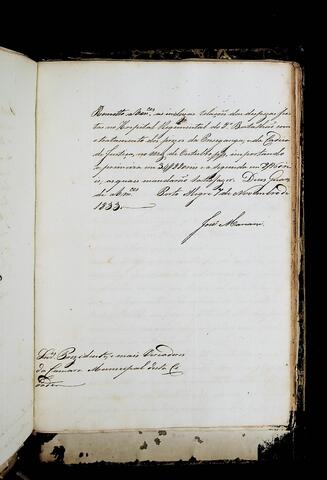 Remetto a Vm.ces as inclusas relações das despezas fei-
tas no Hospital Regimental do 8º Batalhão com
o tratamento dos prezos da Prezeganga, e da Cadêa
de Justiça, no mez de Outubro, importando
a primeira em e a segunda em
as quaes mandarão satisfazer. Deos Guar-
de a Vm.ces Porto Alegre 7 de Novembro de
1833.
José Mariani
Snr.s Prezidente, e mais Vereadores
da Camara Municipal desta Ci-
dade